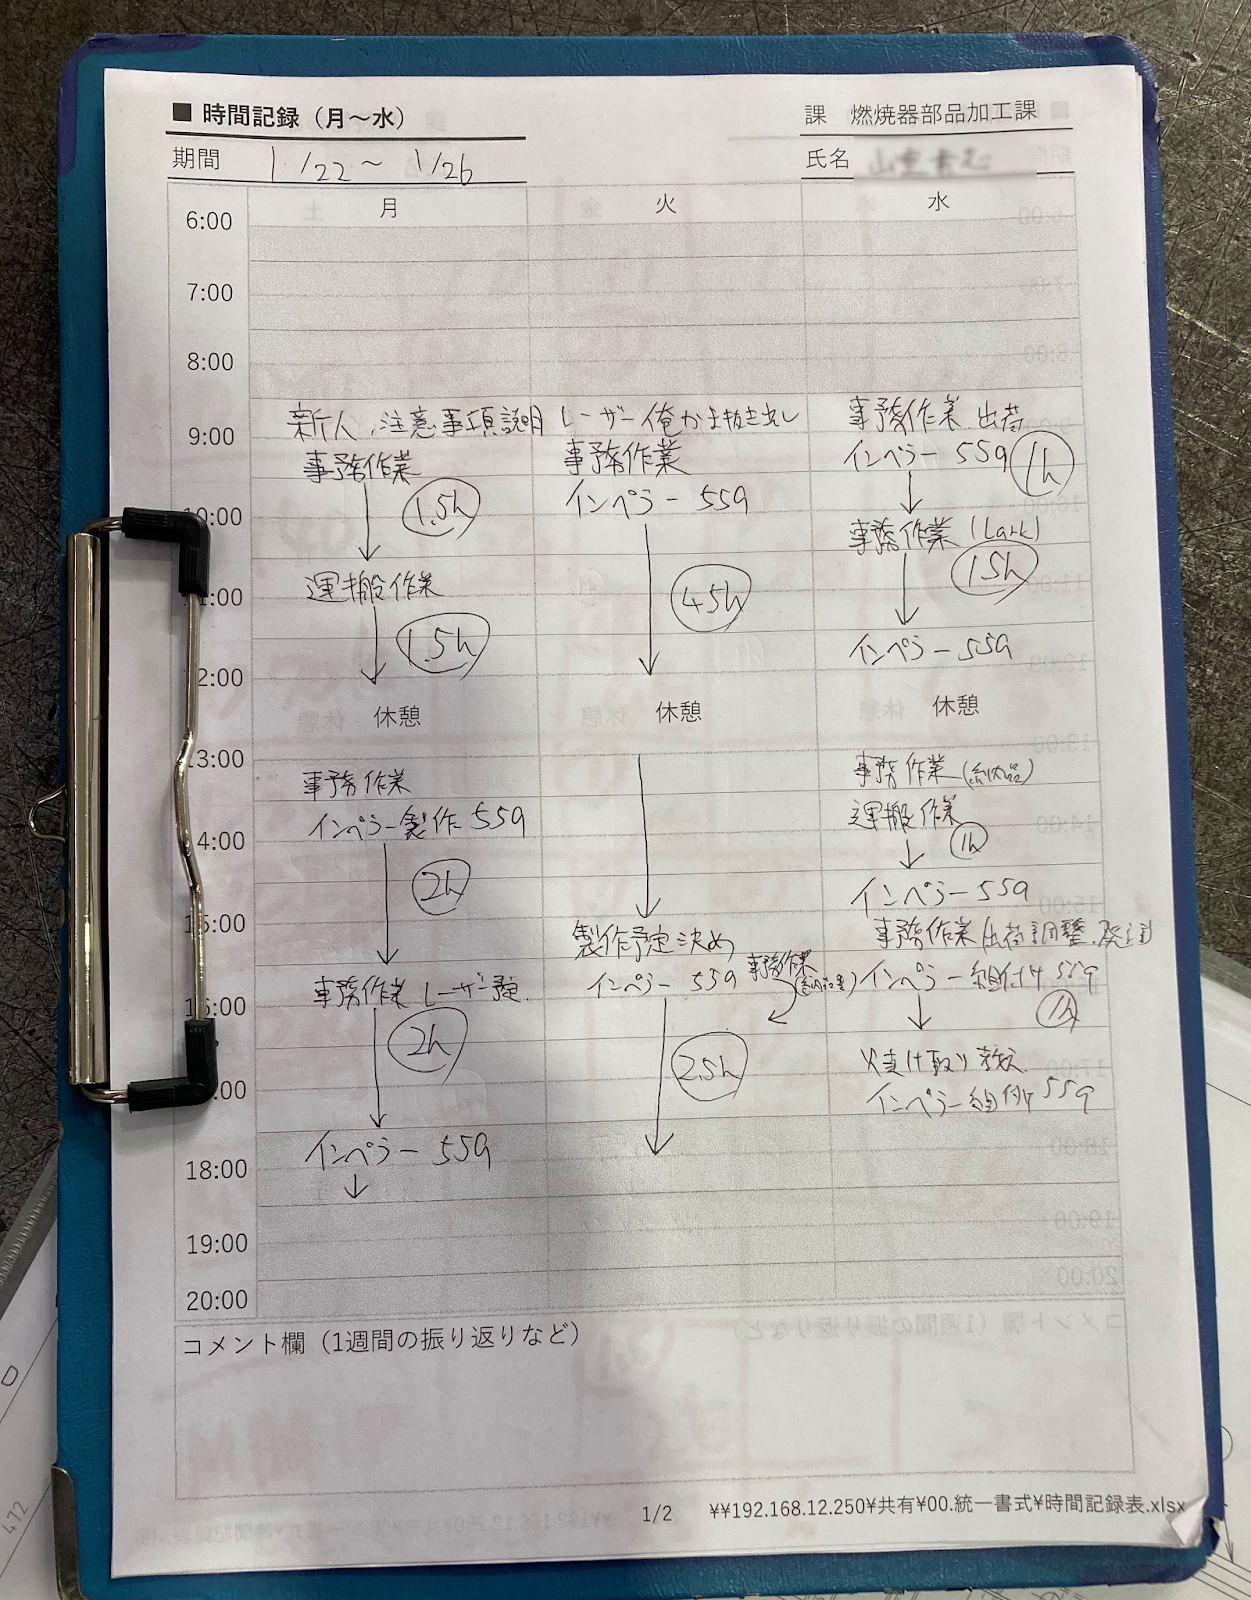 ■ 時間記録（月～水）
課 燃焼器部品加工課
期間 1/22～ 1/26
氏名
月 火 水
6:00
7:00
8:00
新人 注意事項説明
事務作業
1.5h
運搬作業
1.5h
休憩
事務作業
インペラー製作 559
2h
事務作業 レーザー予定
2h
インペラー 559
レーザー 抜き出し
事務作業
インペラー 559
4.5h
休憩
製作予定決め
インペラー 559
事務作業
2.5h
事務作業 出荷
インペラー 559
1h
事務作業 (Lark)
1.5h
インペラー 559
休憩
事務作業 (納品)
運搬作業
1h
インペラー 559
事務作業 出荷調整
インペラー組付け 559
1h
インペラー組付け 559
9:00
10:00
1:00
2:00
13:00
4:00
15:00
16:00
:00
18:00
19:00
20:00
コメント欄（1週間の振り返りなど）
1/2 ¥¥192.168.12.250¥共有¥00.統一書式¥時間記録表.xlsx
472